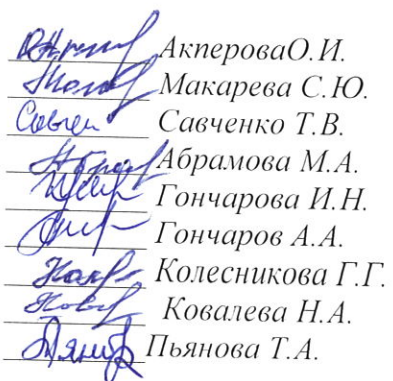 АкпероваО.И.
Макарева С.Ю.
Савченко Т.В.
Абрамова М.А.
Гончарова И.Н.
Гончаров А.А.
Колесникова Г.Г.
Ковалева Н.А.
Пьянова Т.А.